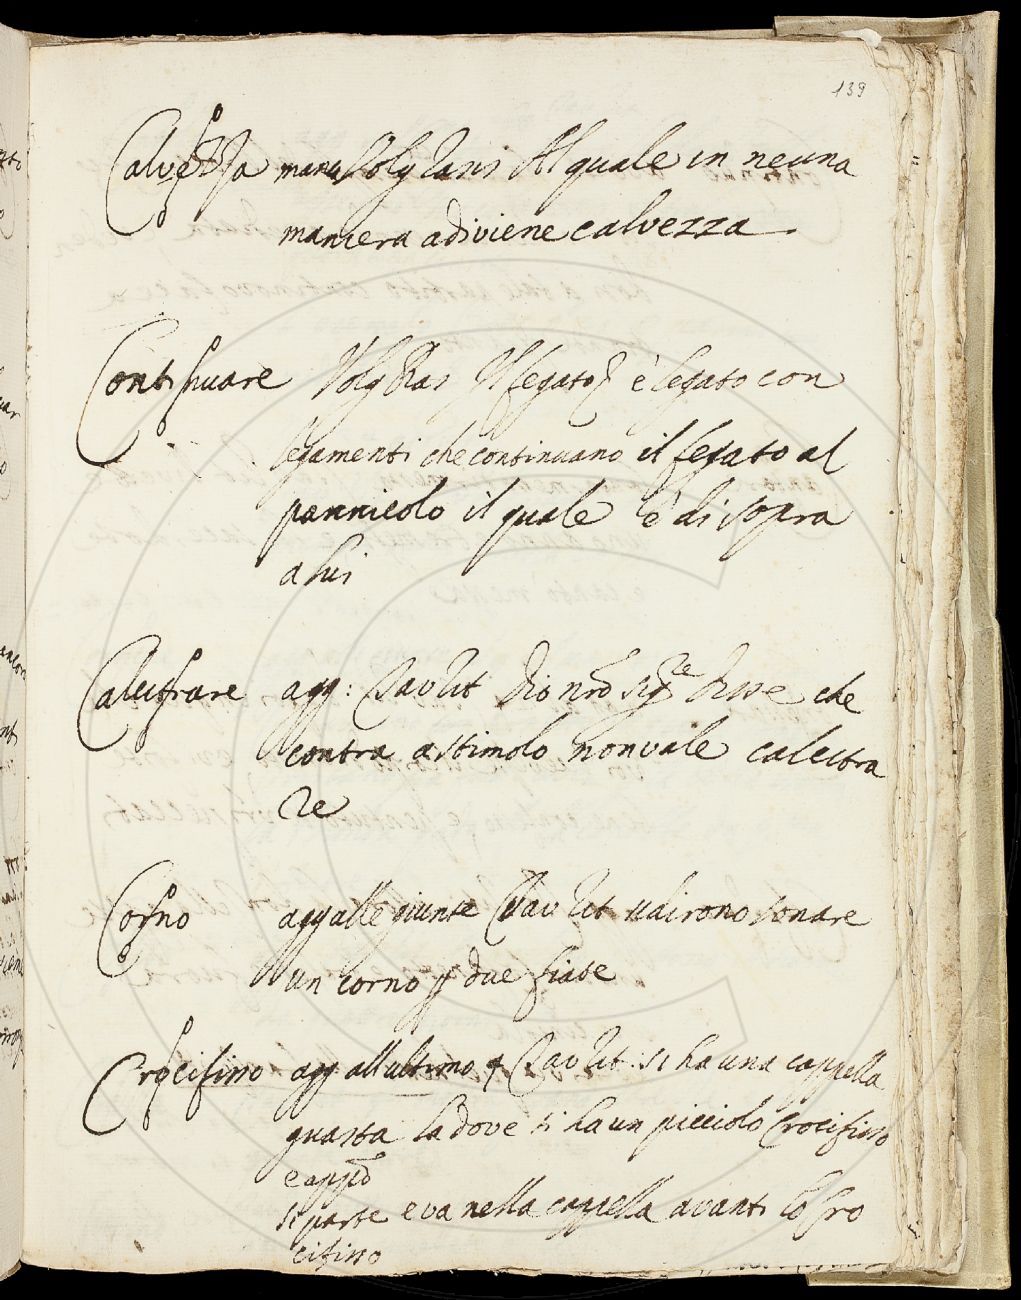 139
Calvezza manus Volg Rasis Al quale in neuna
maniera adiviene calvezza
Continuare Volg Ras Il fegato è legato con
legamenti che continuano il fegato al
pannicolo il quale è di sopra
a lui
Calcitrare agg: Tav Rit Dio nro sigre disse che
contra astimolo non vale calcitra
re
Corno agg alle giunte Tav Rit udirono sonare
un corno p due fiate
Crocifisso agg all ultimo Tav Rit: si ha una cappella
guasta la dove si ha un picciolo Crocifisso
e app:o
si parte e va nella cappella avanti lo Cro
cifisso